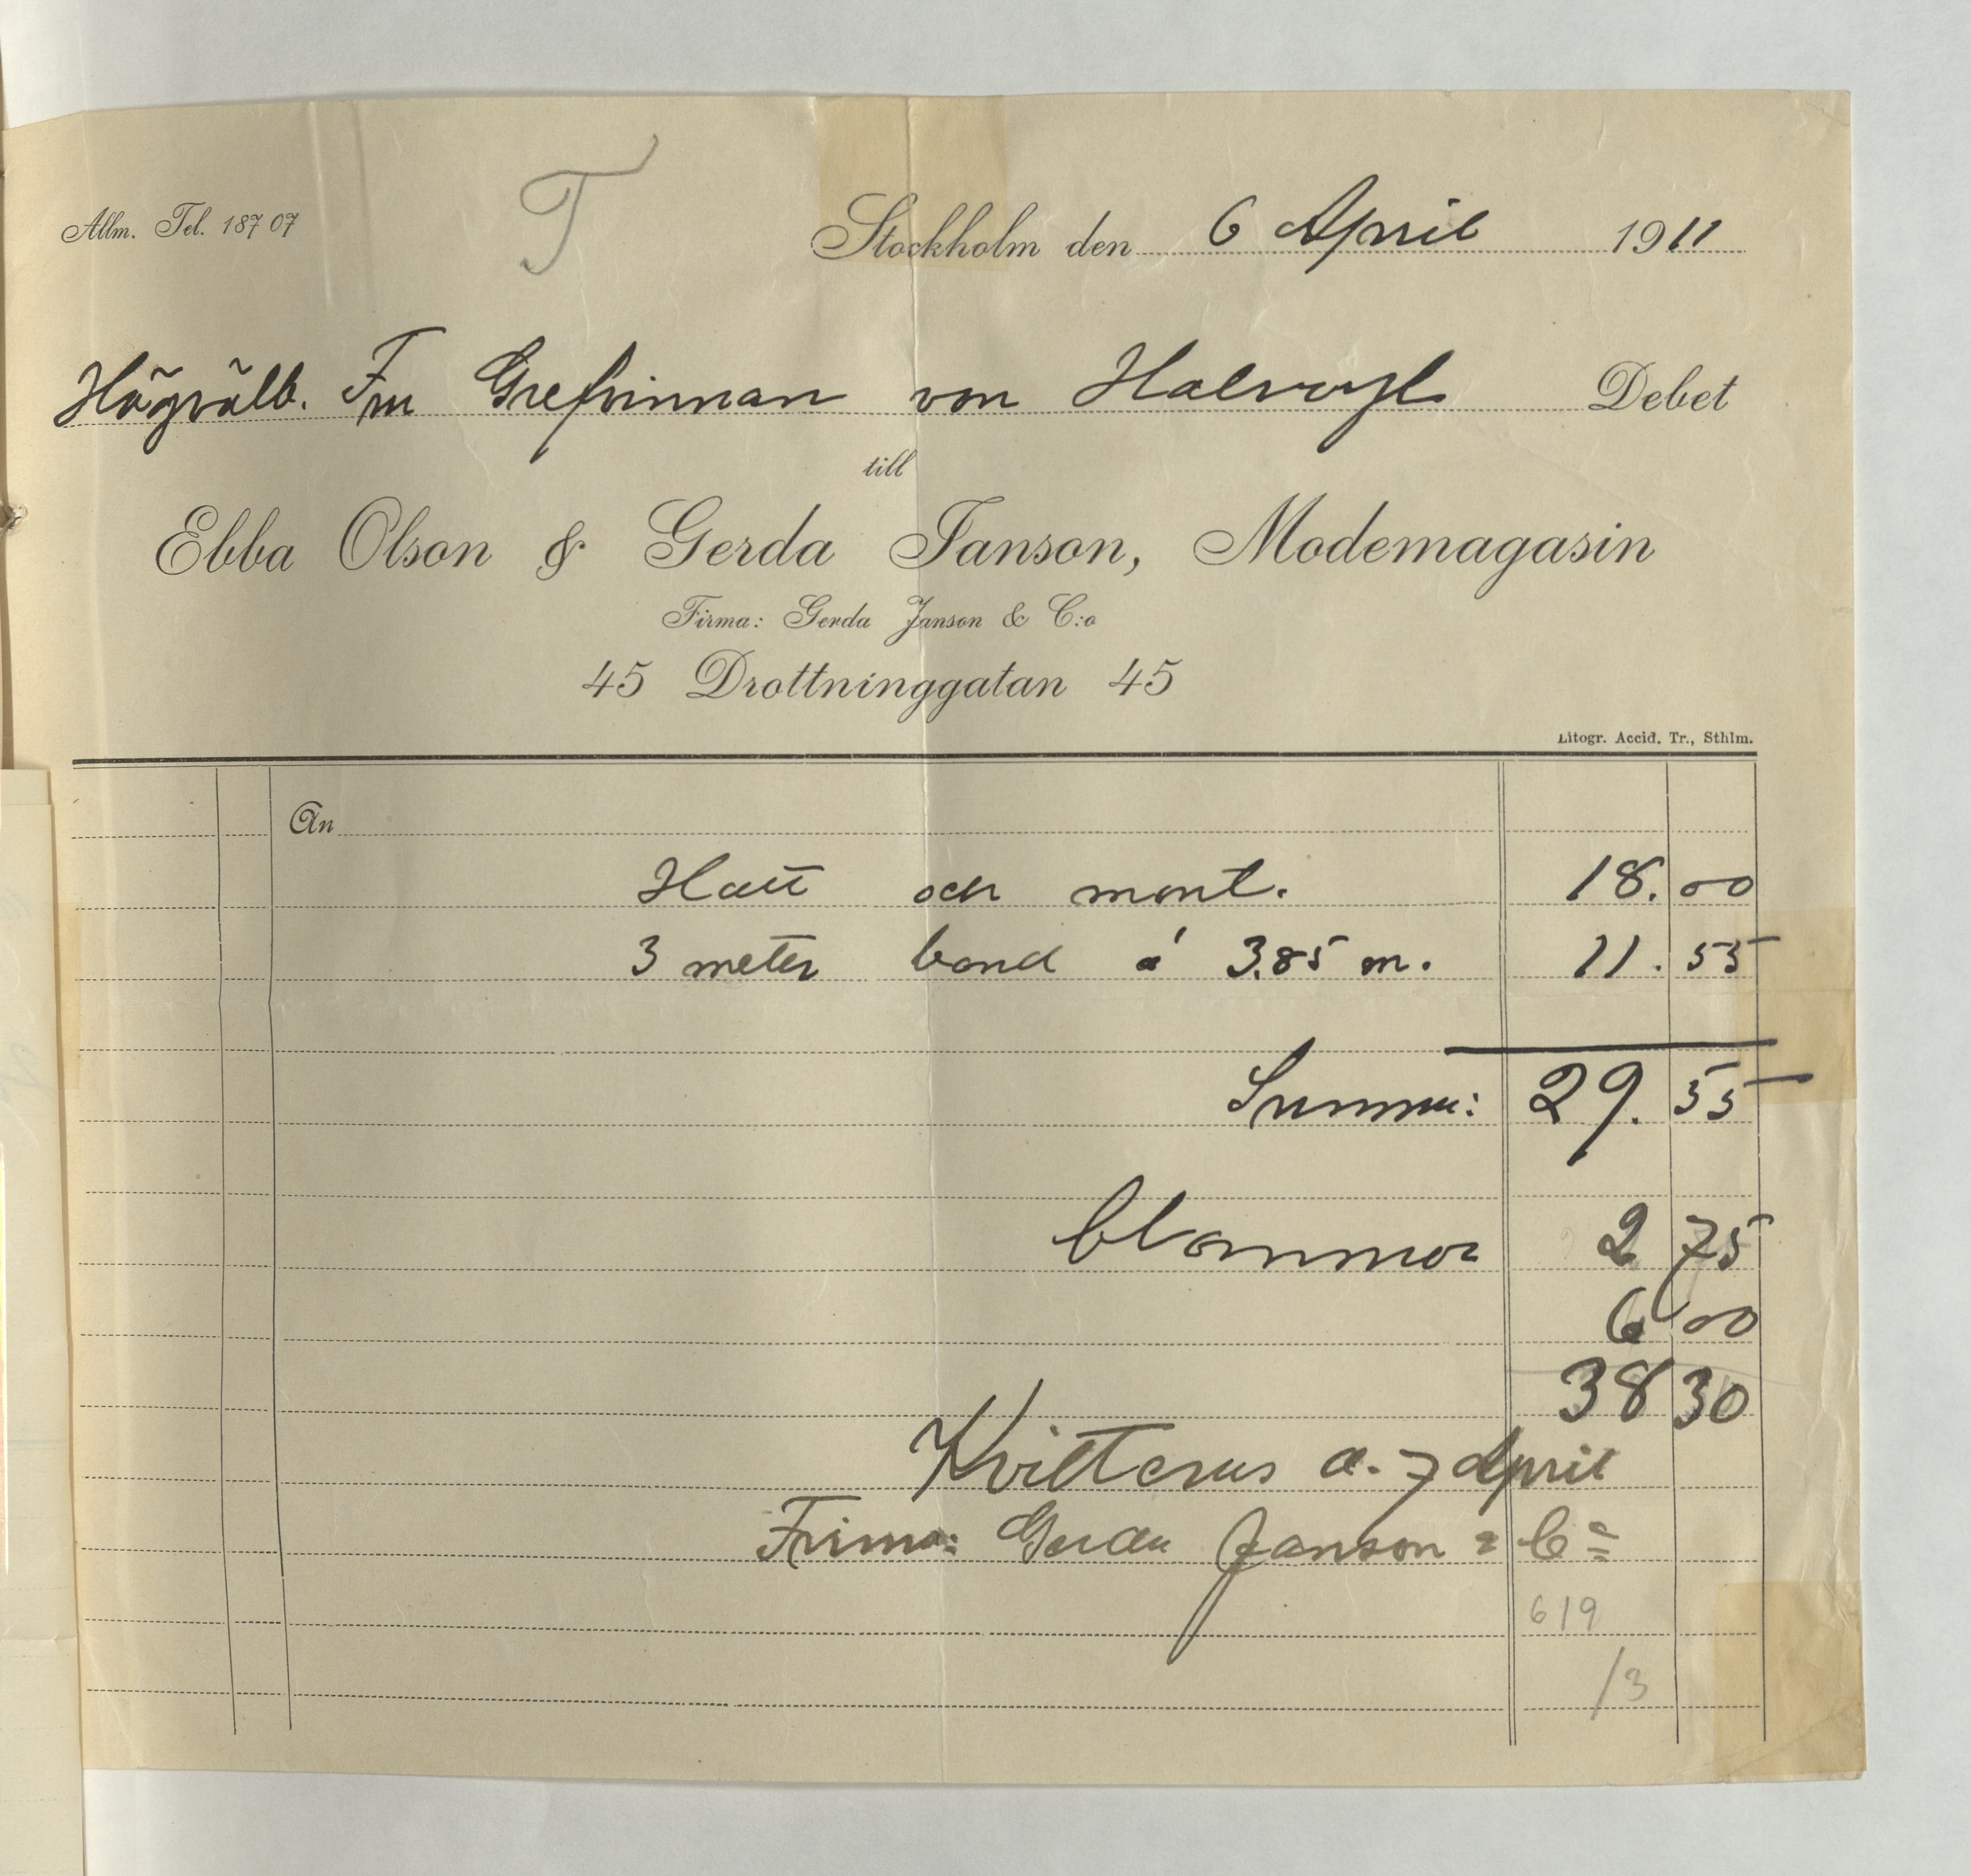 Allm. Tel. 187 07
T
Stockholm den 6 April 1911
Högvälb. Fru Grefvinnan von Halwyl Debet
till
Ebba Olson & Gerda Janson, Modemagasin
Firma: Gerda Janson & C:o
45 Drottninggatan 45
Litogr. Accid. Tr., Sthlm.
An
Hatt och mont. 18. 00
3 meter band á 3.85 m. 11. 55
Summa: 29. 55
blommor 2 75
6 00
38 30
Kvitteras d. 7 April
Firma: Gerda Janson & Co
619
/3